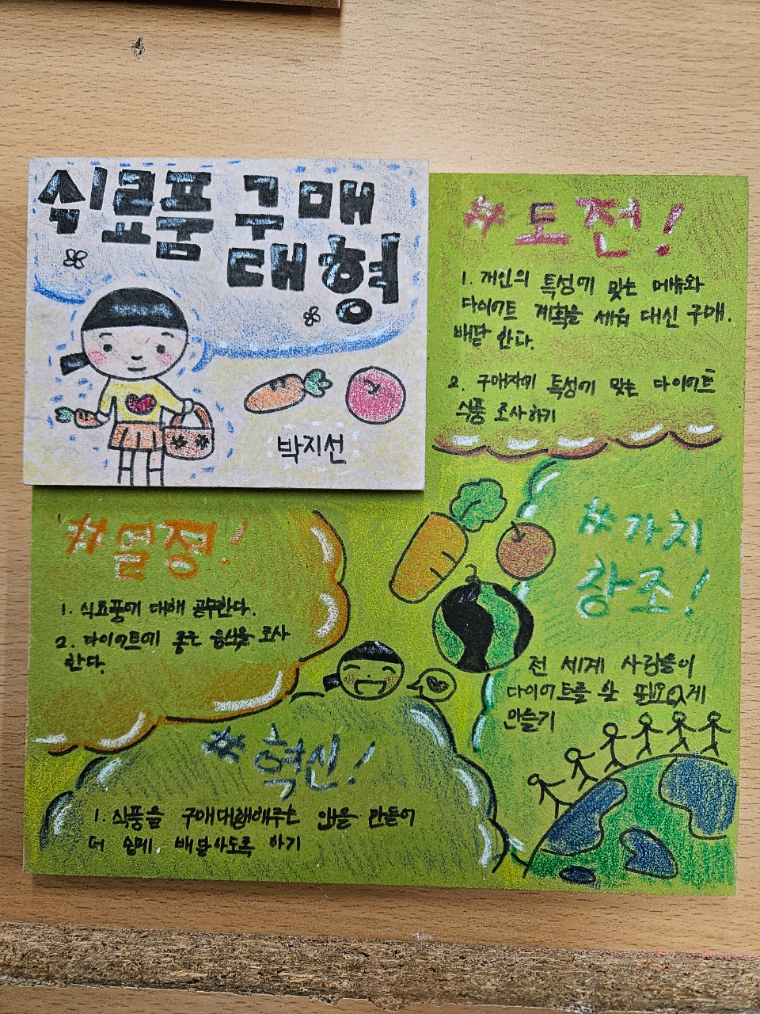 식료품 구매
대형
박지선
#도전!
1. 개인의 특성에 맞는 메뉴와
다이어트 계획을 세워 대신 구매.
배달 한다.
2. 구매자의 특성에 맞는 다이어트
식품 조사하기
#열정!
1. 식료품에 대해 공부한다.
2. 다이어트에 좋은 음식을 조사
한다.
#가치
창조!
전 세계 사람들이
다이어트를 할 필요없게
만들기
#혁신!
1. 식품을 구매대행해주는 앱을 만들어
더 쉽게. 배달하도록 하기